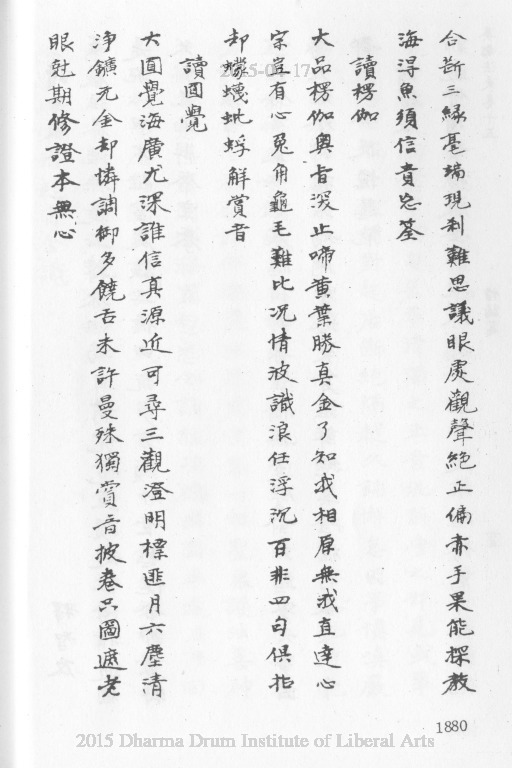 合斷三緣毫端現剎難思議眼處觀聲絕正偏赤手果能探教
海淂魚須信貴忘筌
讀楞伽
大品楞伽奧旨深止啼黃葉勝真金了知我相原無我直達心
宗豈有心兔角龜毛難比况情波識浪任浮沉百非四句俱拈
却蠛蚍蜉解賞音
讀圓覺
大圓覺海廣尤深誰信真源近可尋三觀澄明標匪月六塵清
淨鑛元金却憐調御多饒舌未許曼殊獨賞音披卷只圖遮老
眼尅期修證本無心
1880
2015 Dharma Drum Institute of Liberal Arts